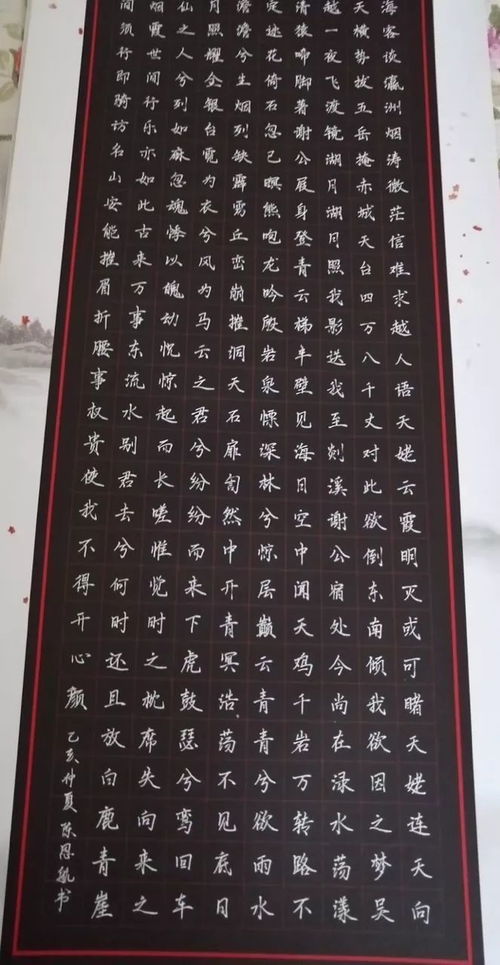 海客谈瀛洲烟涛微茫信难求越人语天姥云霞明灭或可睹天姥连天向
天横势拔五岳掩赤城天台四万八千丈对此欲倒东南倾我欲因之梦吴
越一夜飞渡镜湖月湖月照我影送我至剡溪谢公宿处今尚在渌水荡漾
清猿啼脚著谢公屐身登青云梯半壁见海日空中闻天鸡千岩万转路不
定迷花倚石忽已暝熊咆龙吟殷岩泉慄深林兮惊层巅云青青兮欲雨水
澹澹兮生烟列缺霹雳丘峦崩摧洞天石扉訇然中开青冥浩荡不见底日
月照耀金银台霓为衣兮风为马云之君兮纷纷而来下虎鼓瑟兮鸾回车
仙之人兮列如麻忽魂悸以魄动怳惊起而长嗟惟觉时之枕席失向来之
烟霞世间行乐亦如此古来万事东流水别君去兮何时还且放白鹿青崖
间须行即骑访名山安能摧眉折腰事权贵使我不得开心颜
乙亥仲夏陈恩航书